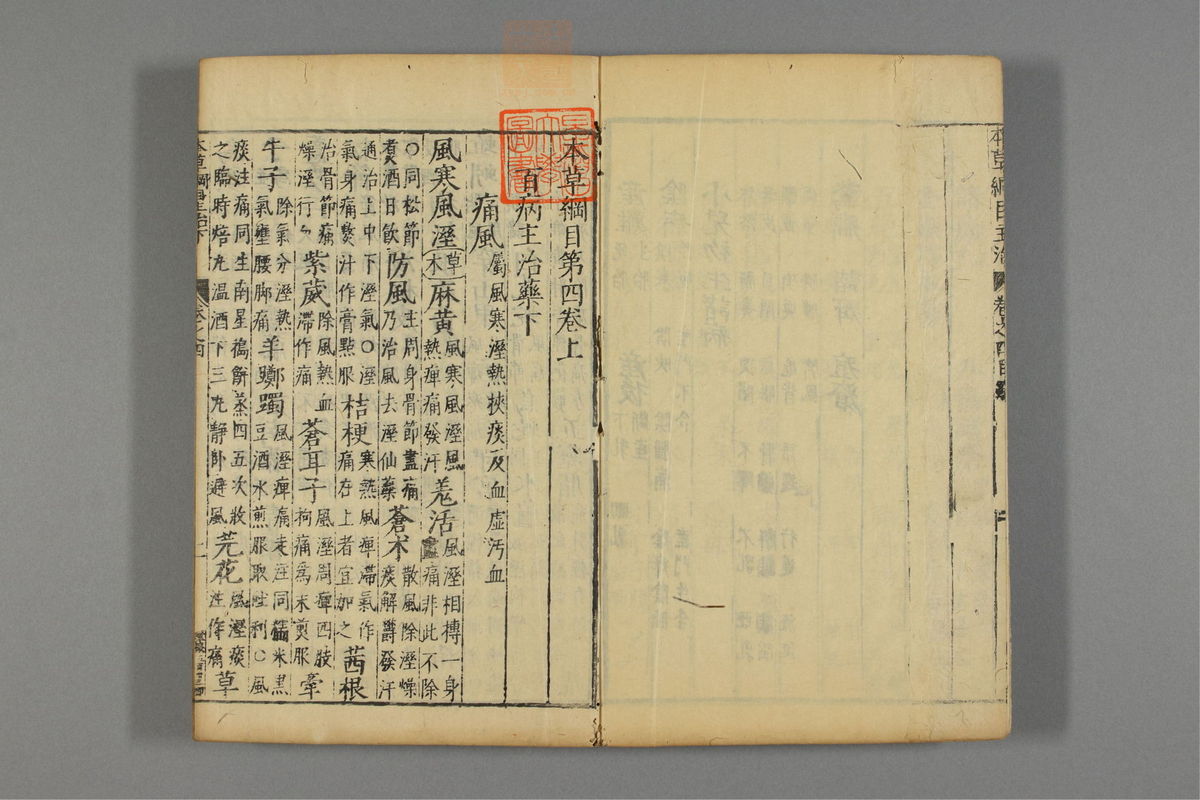 本草綱目主治
卷之四目錄
本草綱目第四卷上
百病主治藥下
痛風屬風寒溼熱挾痰及血虛汚血
風寒風溼草木麻黄風寒風溼風熱痺痛發汗羗活風溼相搏一身盡痛非此不除
○同松節煑酒日飲防風主周身骨節盡痛乃治風去溼仙藥蒼术散風除溼燥痰解鬱發汗
通治上中下溼氣○溼氣身痛熬汁作膏點服桔梗寒熱風痺滯氣作痛在上者宜加之茜根
治骨節痛燥溼行紫葳除風熱血滯作痛蒼耳子風溼周痺四肢拘痛爲末煎服牽
牛子除氣分溼熱氣壅腰脚痛羊躑躅風溼痺痛走注同糯米黑豆酒水煎服取吐利○風
痰注痛同生南星搗餅蒸四五次收之臨時焙丸溫酒下三丸靜卧避風芫花風溼痰注作痛草
本草綱目主治下
卷之四